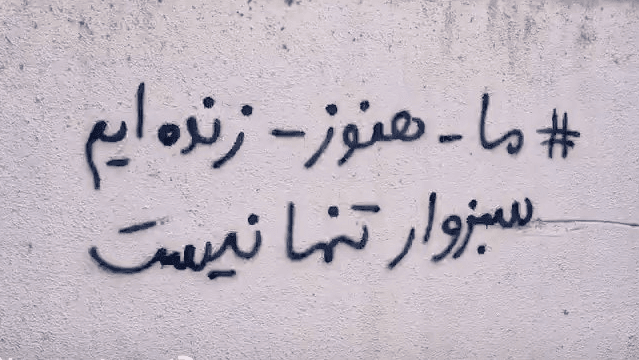 #ما-هنوز-زنده ایم
سبزوار تنها نیست